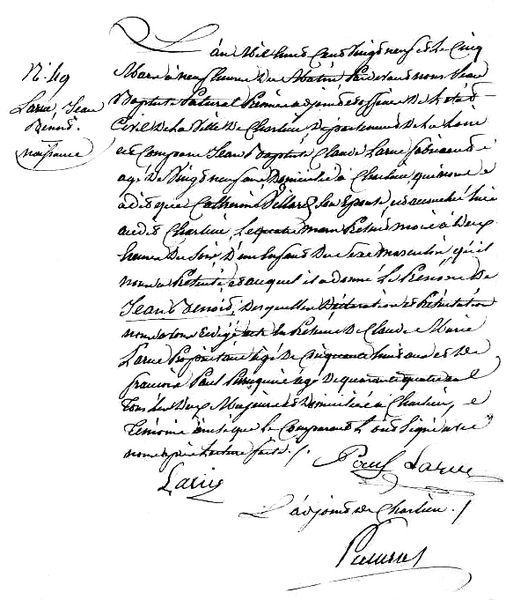 N.° 49
Larue, Jean
Benoit.
naissance
L'an Mil huit Cent vingt neuf et le Cinq
Mars à neuf heures Du Matin Par devant nous Jean
Baptiste Patural Premier adjoint et officier de L'état
Civil De La Ville De Charlieu Département De La Loire
est Comparu Jean Baptiste Claude Larue fabricant
agé De Vingt neuf ans Domicilié à Charlieu qui nous
a dit que Catherine Villard Son Epouse, est accouchée hier
au dit Charlieu, Le quatre mars Présent mois à Deux
heures Du Soir D'un Enfant Du Sexe Masculin, qu'il
nous a Présenté et auquel il a donné Le Prénom De
Jean Benoit, Desquelles Déclaration et Présentation
nous avons Redigé acte En Présence De Claude Marie
Larue Propriétaire agé De Cinquante huit ans et De
François Paul agé De quarante quatre ans
Tous les Deux Majeurs et Domiciliés à Charlieu,
Témoins ainsi que Le Comparant ont Signé avec
nous après Lecture faite. /
Larue
Paul Larue
L'adjoint de Charlieu. /
Patural